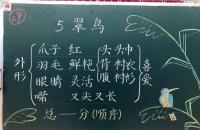 29
5 翠鸟
外形
爪子 红 头 头巾
羽毛 鲜艳 背 衬衣
眼睛 灵活 腹 衬衫
嘴 又尖又长
喜爱
总——分(顺序)